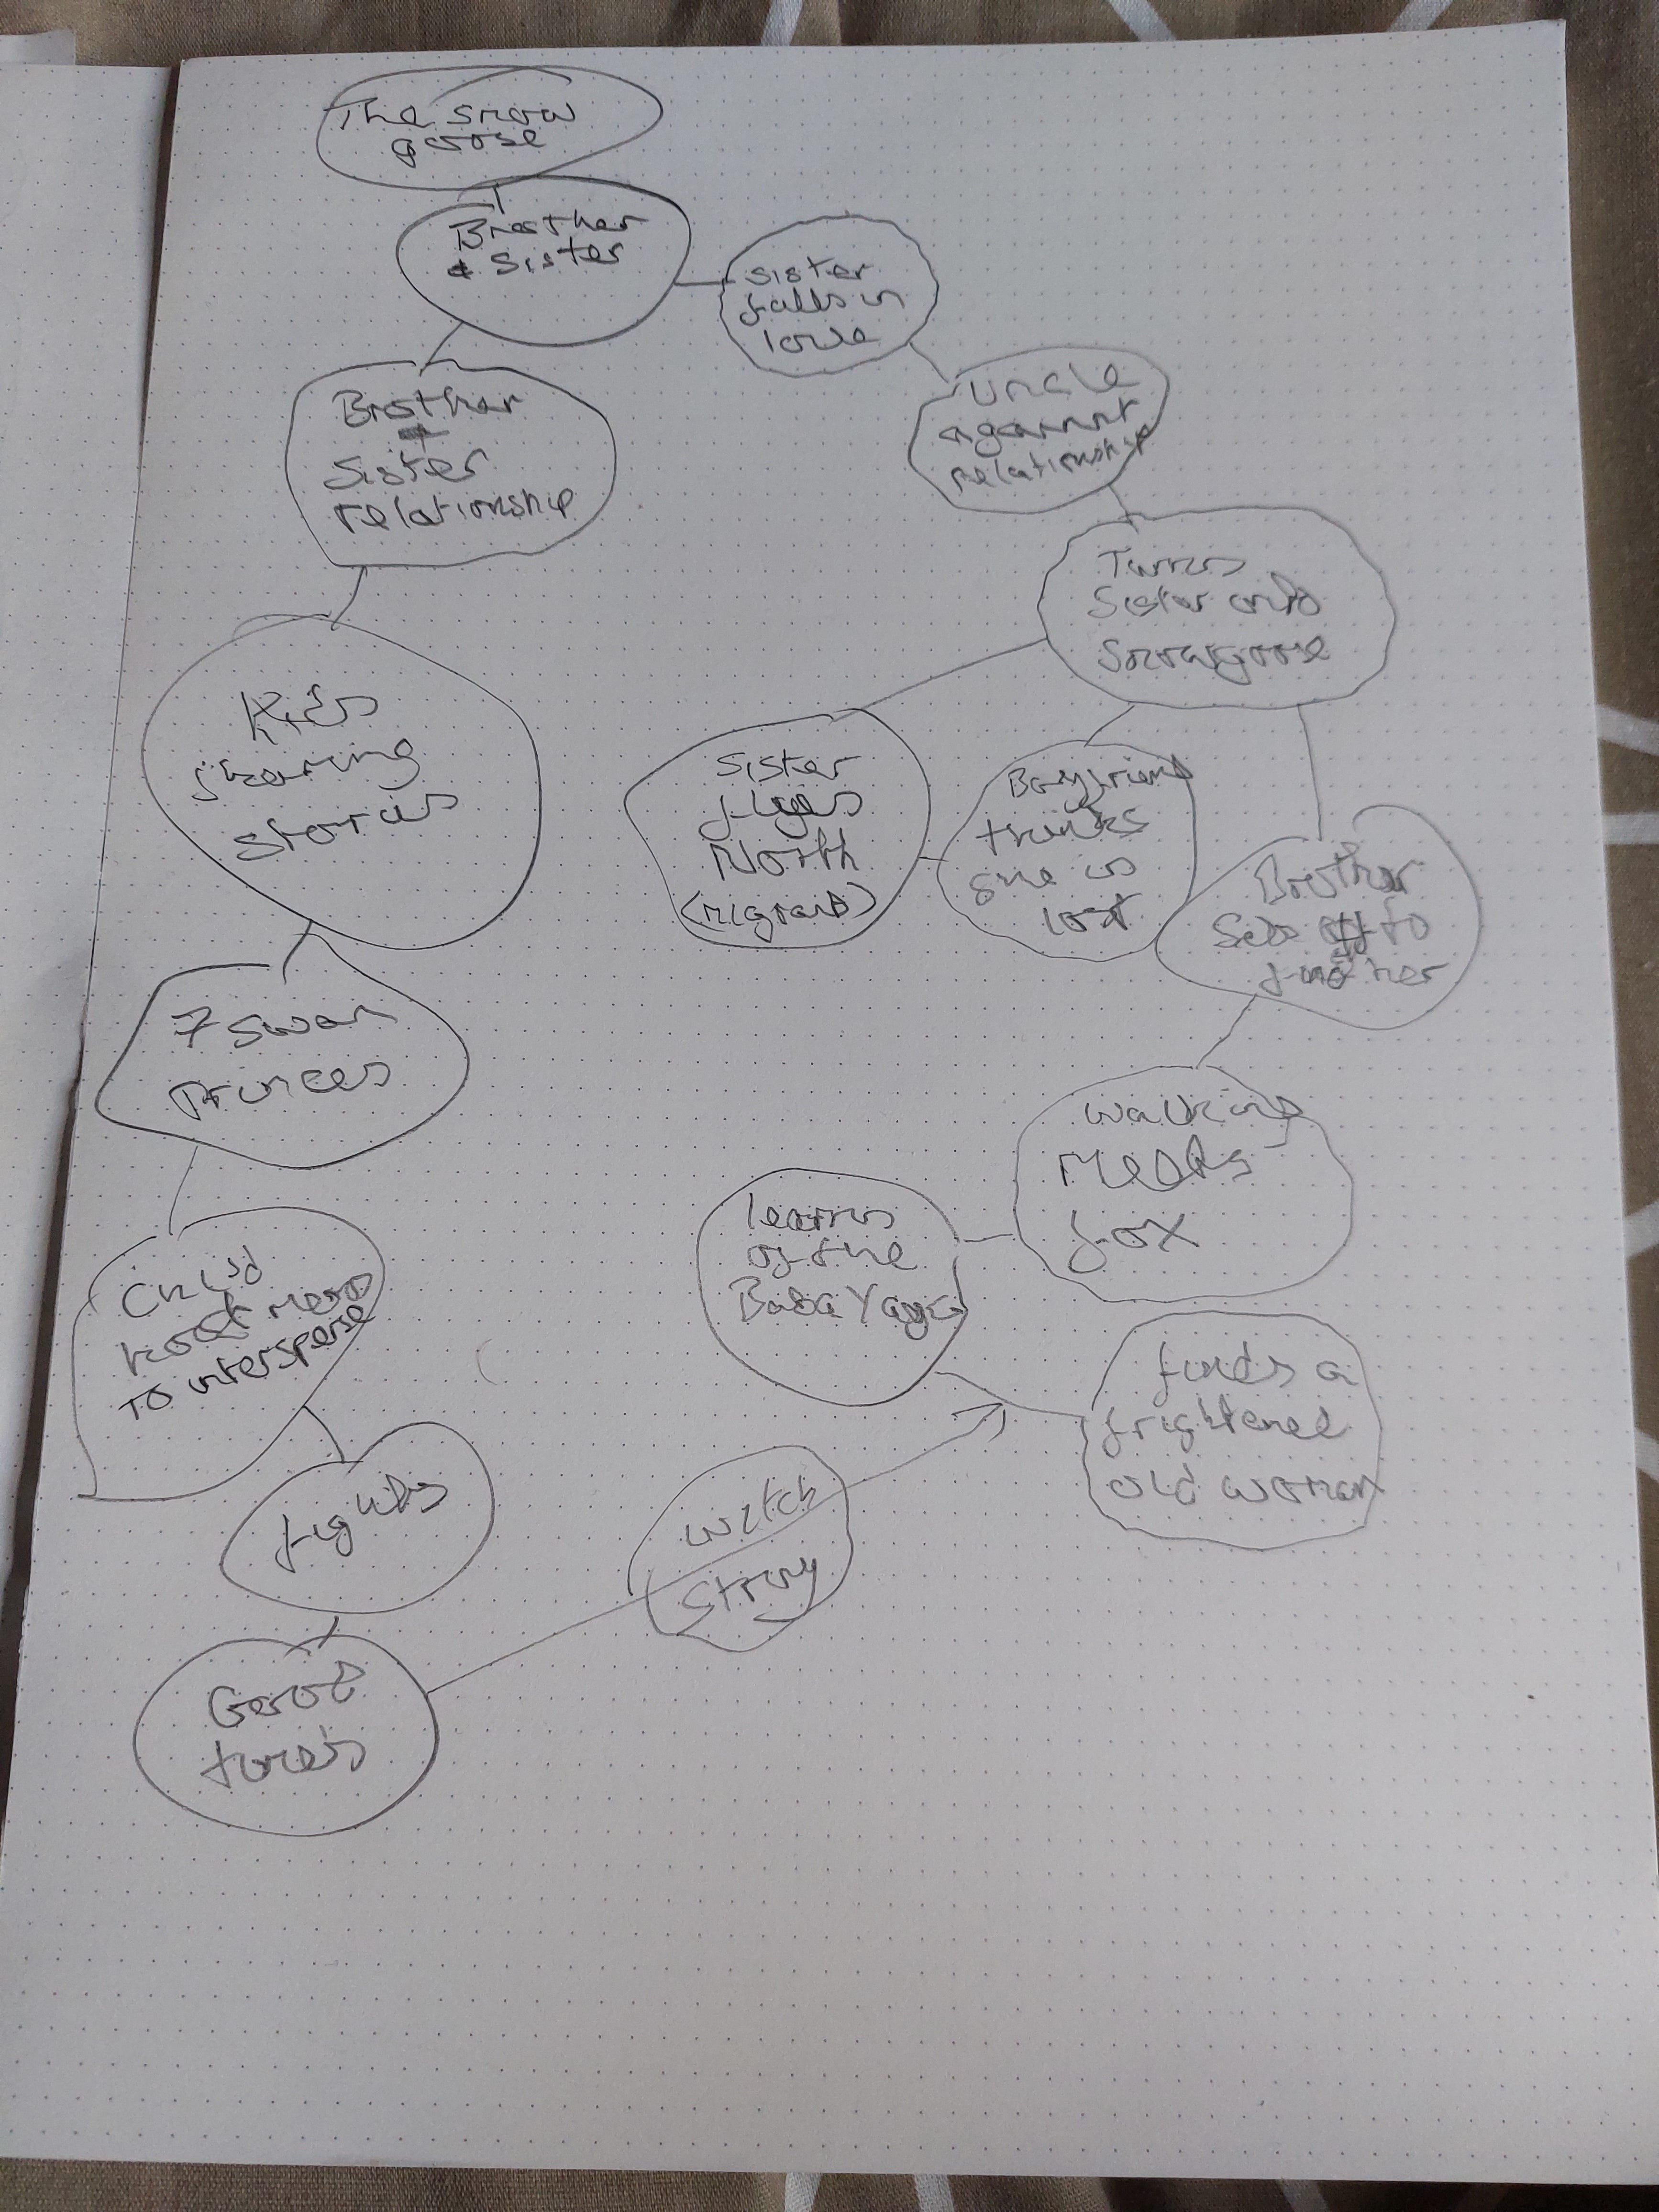 The snow
goose
Brother
& Sister
sister
falls in
love
Uncle
against
relationship
Brother
+
Sister
relationship
Turns
Sister into
Snowgoose
Kids
sharing
stories
Sister
flyes
North
(migrants)
Boyfriend
thinks
she is
lost
Brother
Sets off to
find her
7 swan
Princes
walking
Meets
fox
learns
of the
Baba Yaga
Child
hood
to intersperse
finds a
frightened
old woman
fights
witch
story